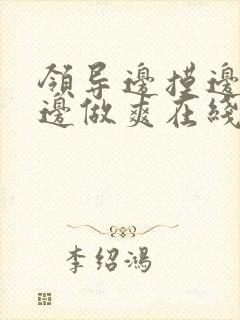 領导邊摸邊
邊做爽在綫
李绍鴻